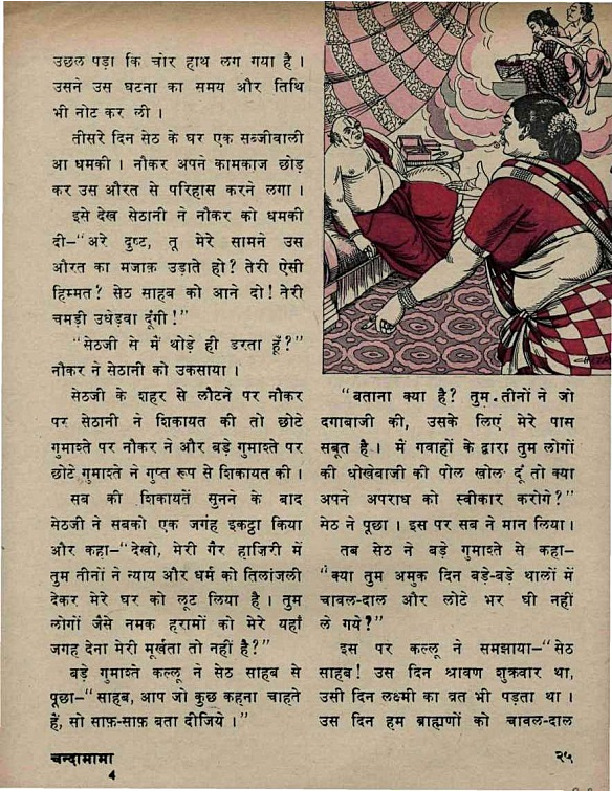 उछल पड़ा कि चोर हाथ लग गया है ।
उसने उस घटना का समय और तिथि
भी नोट कर ली ।
तीसरे दिन सेठ के घर एक सब्जीवाली
आ धमकी । नौकर अपने कामकाज छोड़
कर उस औरत से परिहास करने लगा ।
इसे देख सेठानी ने नौकर को धमकी
दी–“अरे दुष्ट, तू मेरे सामने उस
औरत का मजाक़ उड़ाते हो? तेरी ऐसी
हिम्मत? सेठ साहब को आने दो! तेरी
चमड़ी उधेड़वा दूंगी!”
“सेठजी से में थोड़े ही डरता हूँ?”
नौकर ने सेठानी को उकसाया ।
सेठजी के शहर से लौटने पर नौकर
पर सेठानी ने शिकायत की तो छोटे
गुमाश्ते पर नौकर ने और बड़े गुमाश्ते पर
छोटे गुमाश्ते ने गुप्त रूप से शिकायत की ।
सब की शिकायतें सुनने के बाद
सेठजी ने सबको एक जगह इकट्ठा किया
और कहा–“देखो, मेरी गैर हाज़िरी में
तुम तीनों ने न्याय और धर्म को तिलांजली
देकर मेरे घर को लूट लिया है । तुम
लोगों जैसे नमक हरामों को मेरे यहाँ
जगह देना मेरी मूर्खता तो नहीं है?”
बड़े गुमाश्ते कल्लू ने सेठ साहब से
पूछा–“साहब, आप जो कुछ कहना चाहते
हैं, सो साफ़-साफ़ बता दीजिये ।”
“बताना क्या है? तुम तीनों ने जो
दगाबाजी की, उसके लिए मेरे पास
सबूत है । में गवाहों के द्वारा तुम लोगों
की धोखेबाजी की पोल खोल दूं तो क्या
अपने अपराध को स्वीकार करोगे?”
सेठ ने पूछा । इस पर सब ने मान लिया ।
तब सेठ ने बड़े गुमाश्ते से कहा–
“क्या तुम अमुक दिन बड़े-बड़े थालों में
चावल-दाल और लोटे भर घी नहीं
ले गये?”
इस पर कल्लू ने समझाया–“सेठ
साहब! उस दिन श्रावण शुक्रवार था,
उसी दिन लक्ष्मी का व्रत भी पड़ता था ।
उस दिन हम ब्राह्मणों को चावल-दाल
चन्दामामा
२५
4